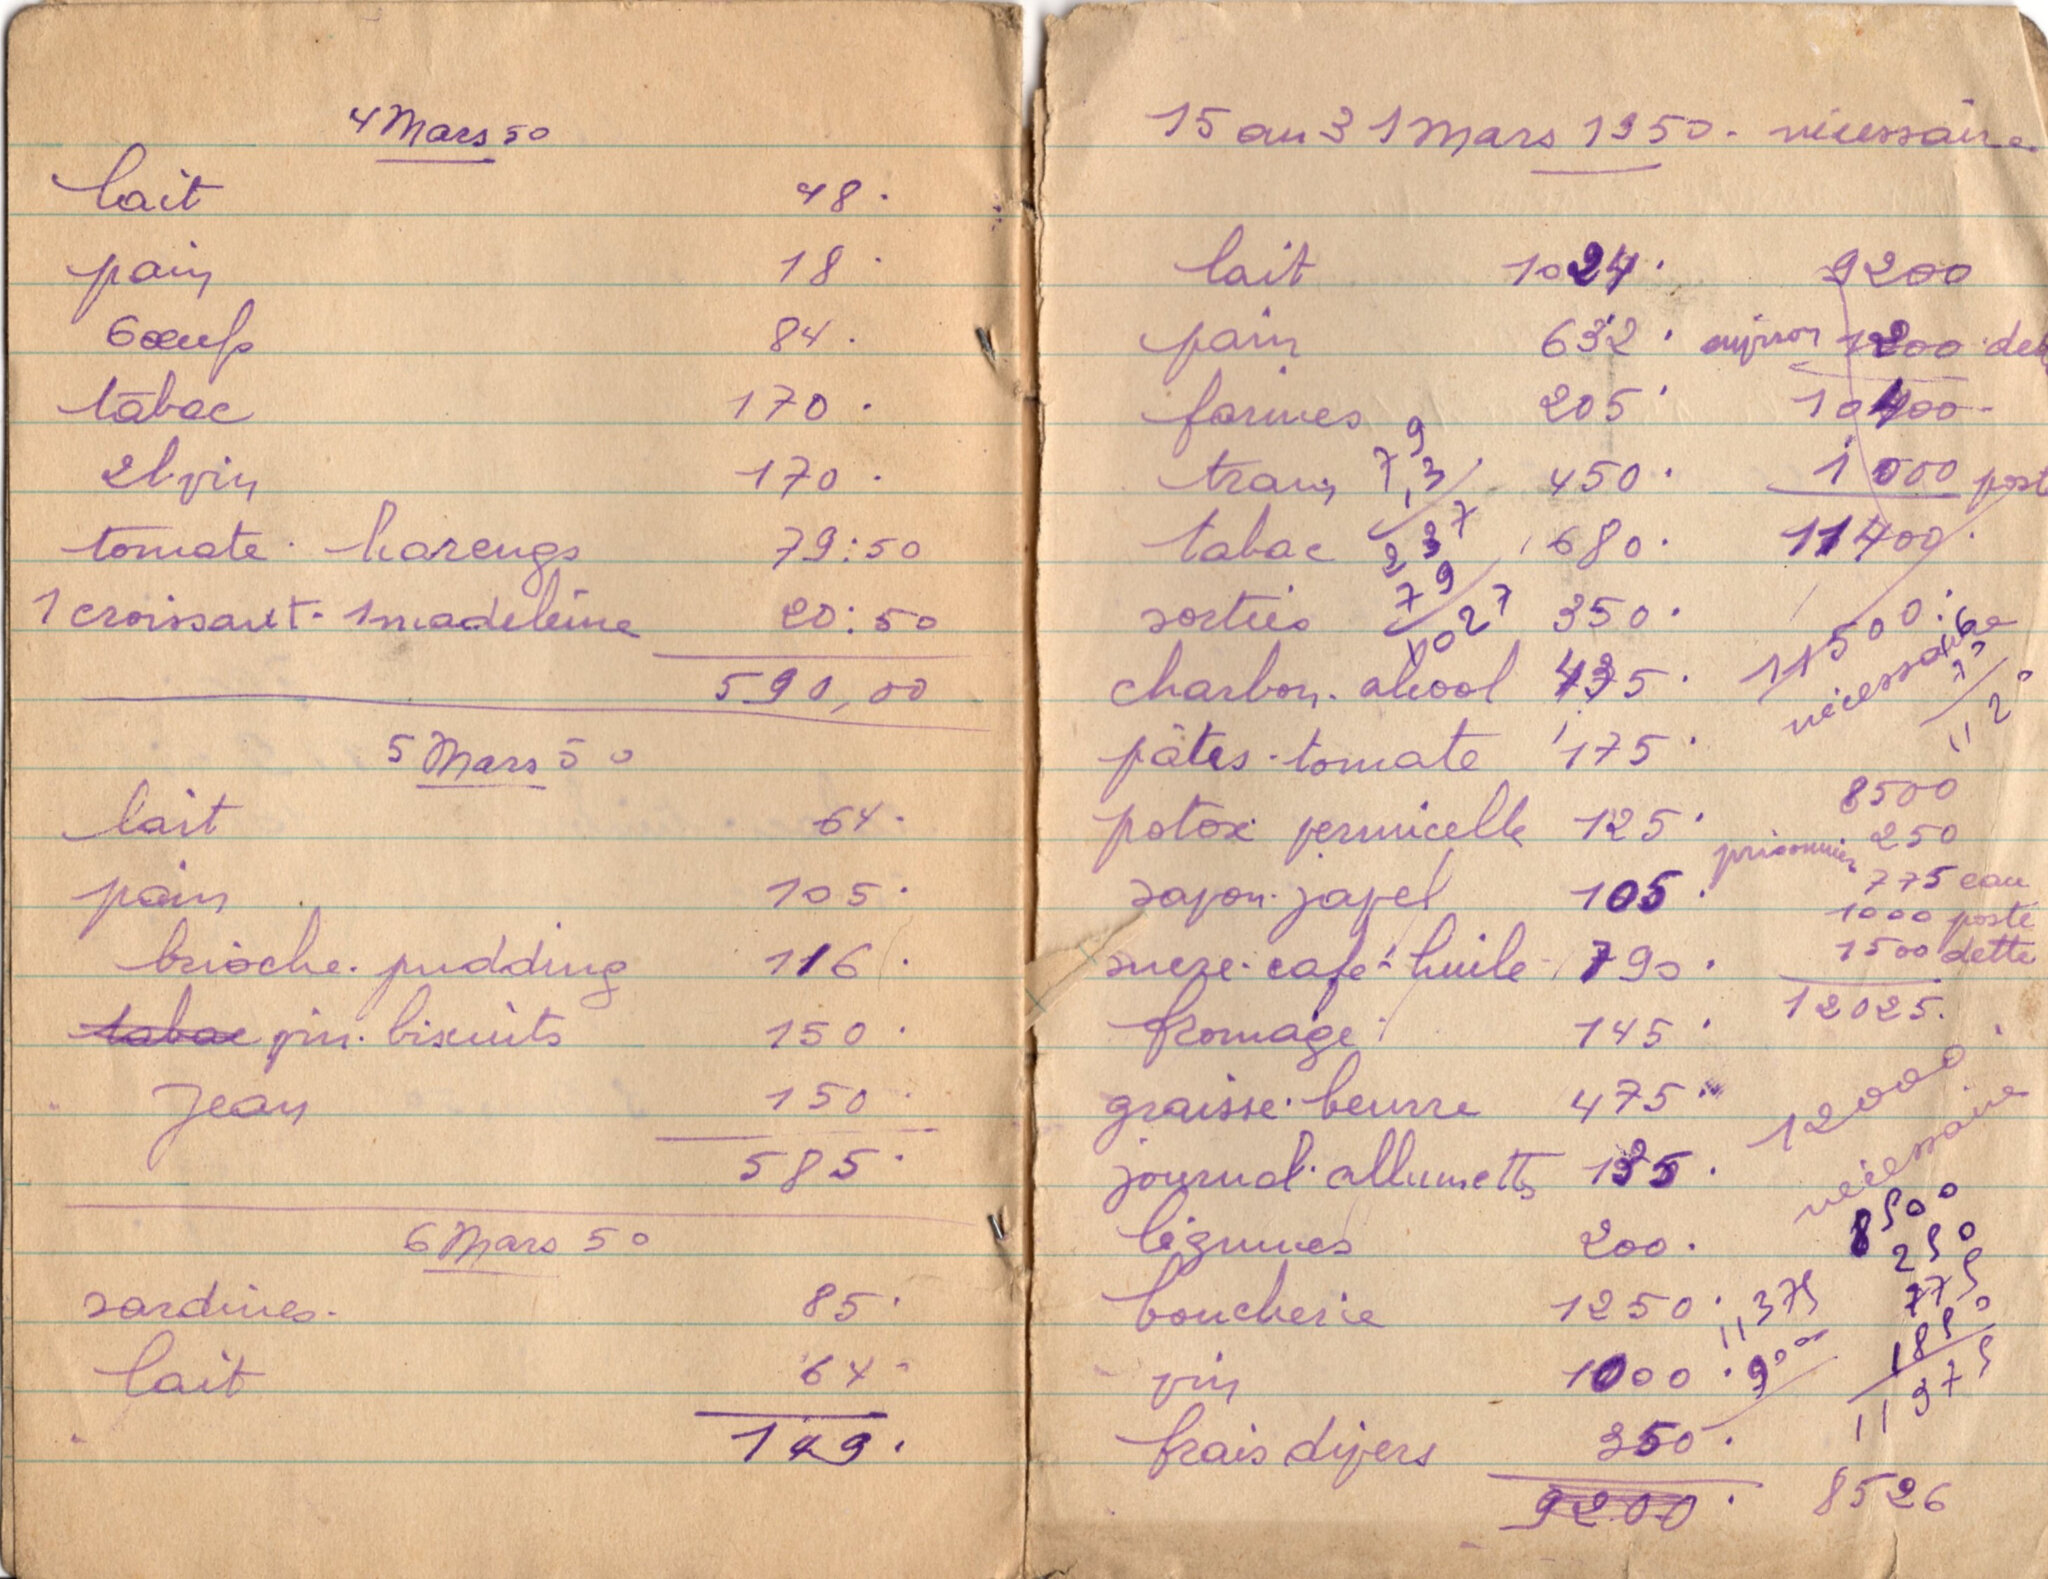 4 Mars 50
lait 48.
pain 18.
6 œufs 84.
tabac 170.
2l vin 170.
tomate. harengs 79:50
1 croissant. 1 madeleine 20:50
590,00
5 Mars 50
lait 64.
pain 105.
brioche. pudding 116.
tabac vin. biscuits 150.
Jean 150.
585.
6 Mars 50
sardines. 85.
lait 64
149.
15 au 31 Mars 1950. nécessaire
lait 1024. 9200
pain 632. 1200
farines 205 10400
tram 450. 1000 post
tabac 680. 11400.
sorties 350. 11500.
nécessaire
charbon. alcool 435.
pâtes. tomate 175. 1120
8500
potox vermicelle 125. 250
prisonnier
savon. javel 105. 775 eau
1000 poste
sucre. café. huile 790. 1500 dette
fromage 145. 12025.
graisse. beurre 475. 12000.
nécessaire
journal. allumetts 135.
légumes 200. 8500
250
boucherie 1250. 11375 775
vin 1000. 9000 1850
11375
frais divers 350.
9200. 8526